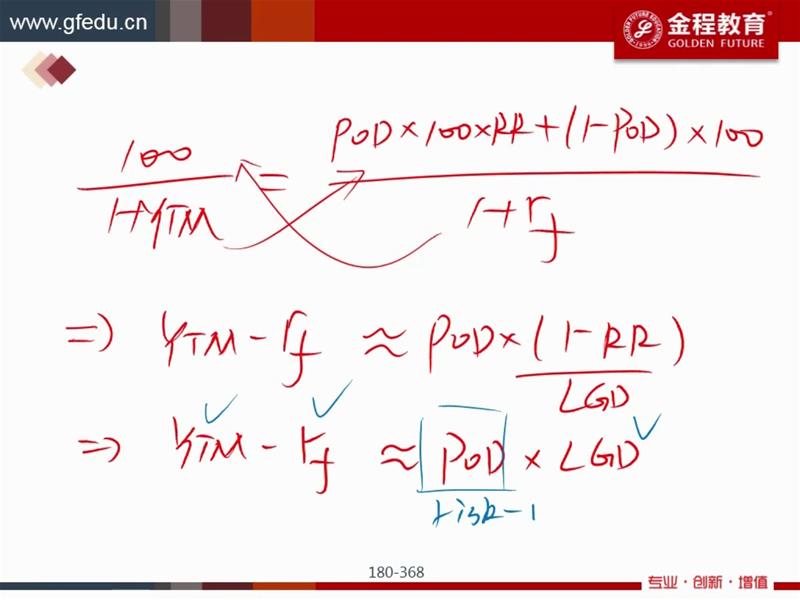 www.gfedu.cn
金程教育
GOLDEN FUTURE
100 / 1+YTM = POD×100×RR+(1-POD)×100 / 1+rf
⇒ YTM - rf ≈ POD×(1-RR)
LGD
⇒ YTM - rf ≈ POD × LGD
risk-1
180-368
专业·创新·增值